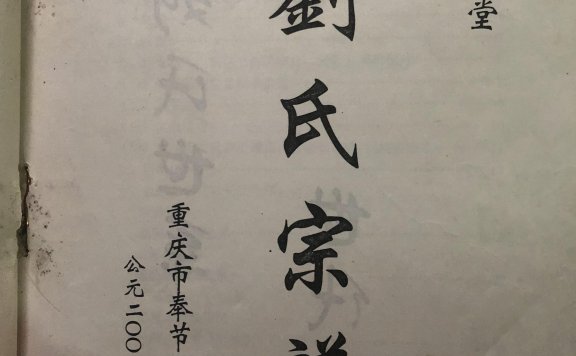 堂
劉氏宗
重庆市奉节
公元二〇〇